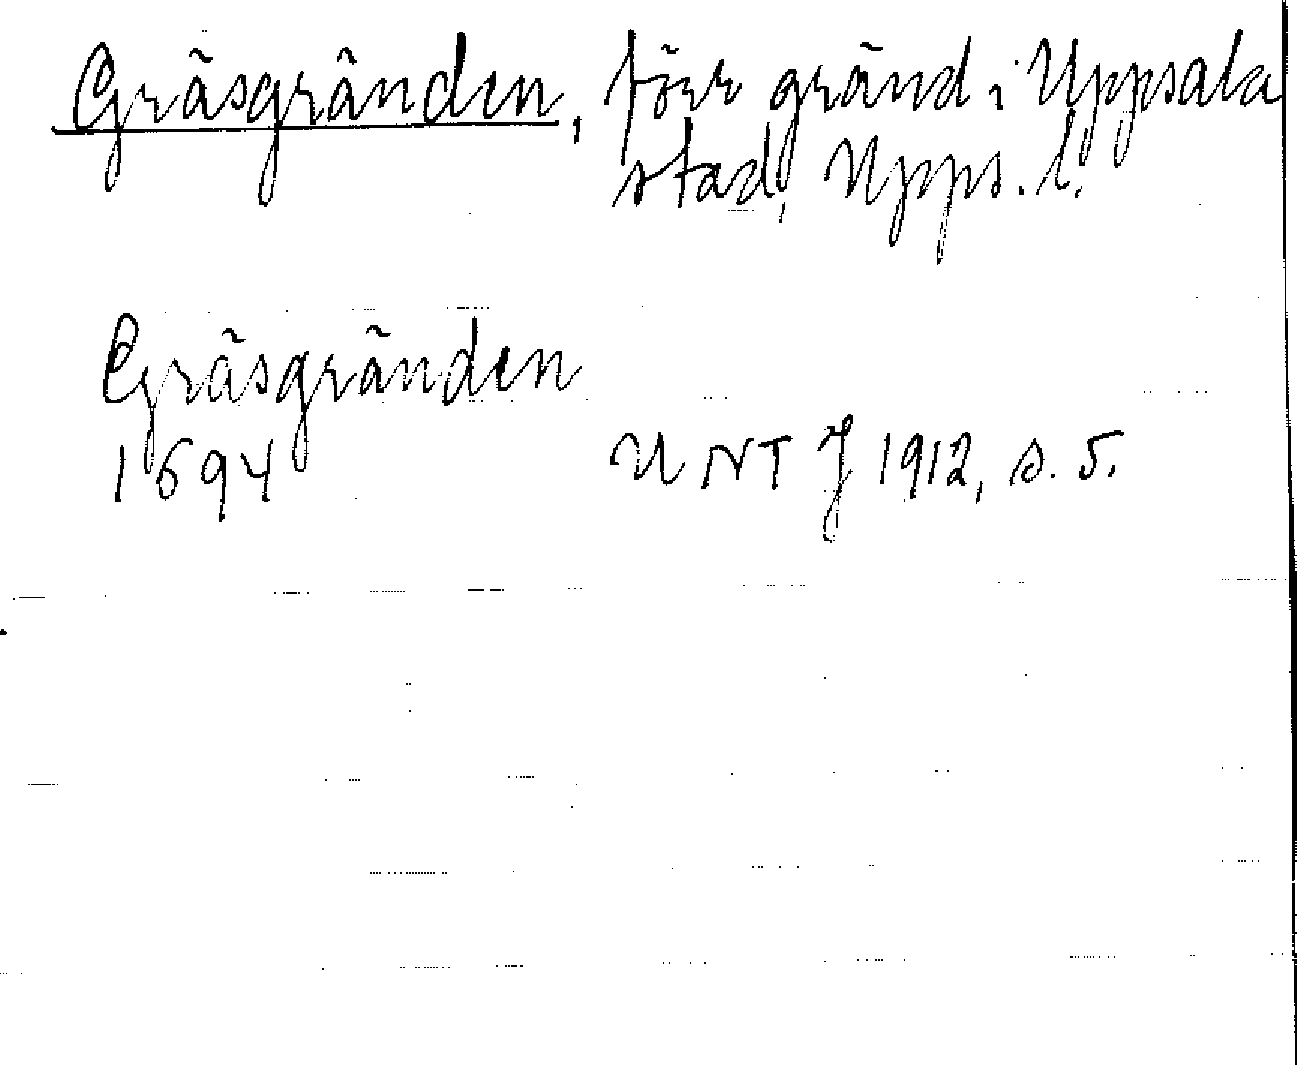 Gräsgränden, förr gränd i Uppsala
stad, Upps. l.
Gräsgränden
1694 UNT J 1912, s. 5.